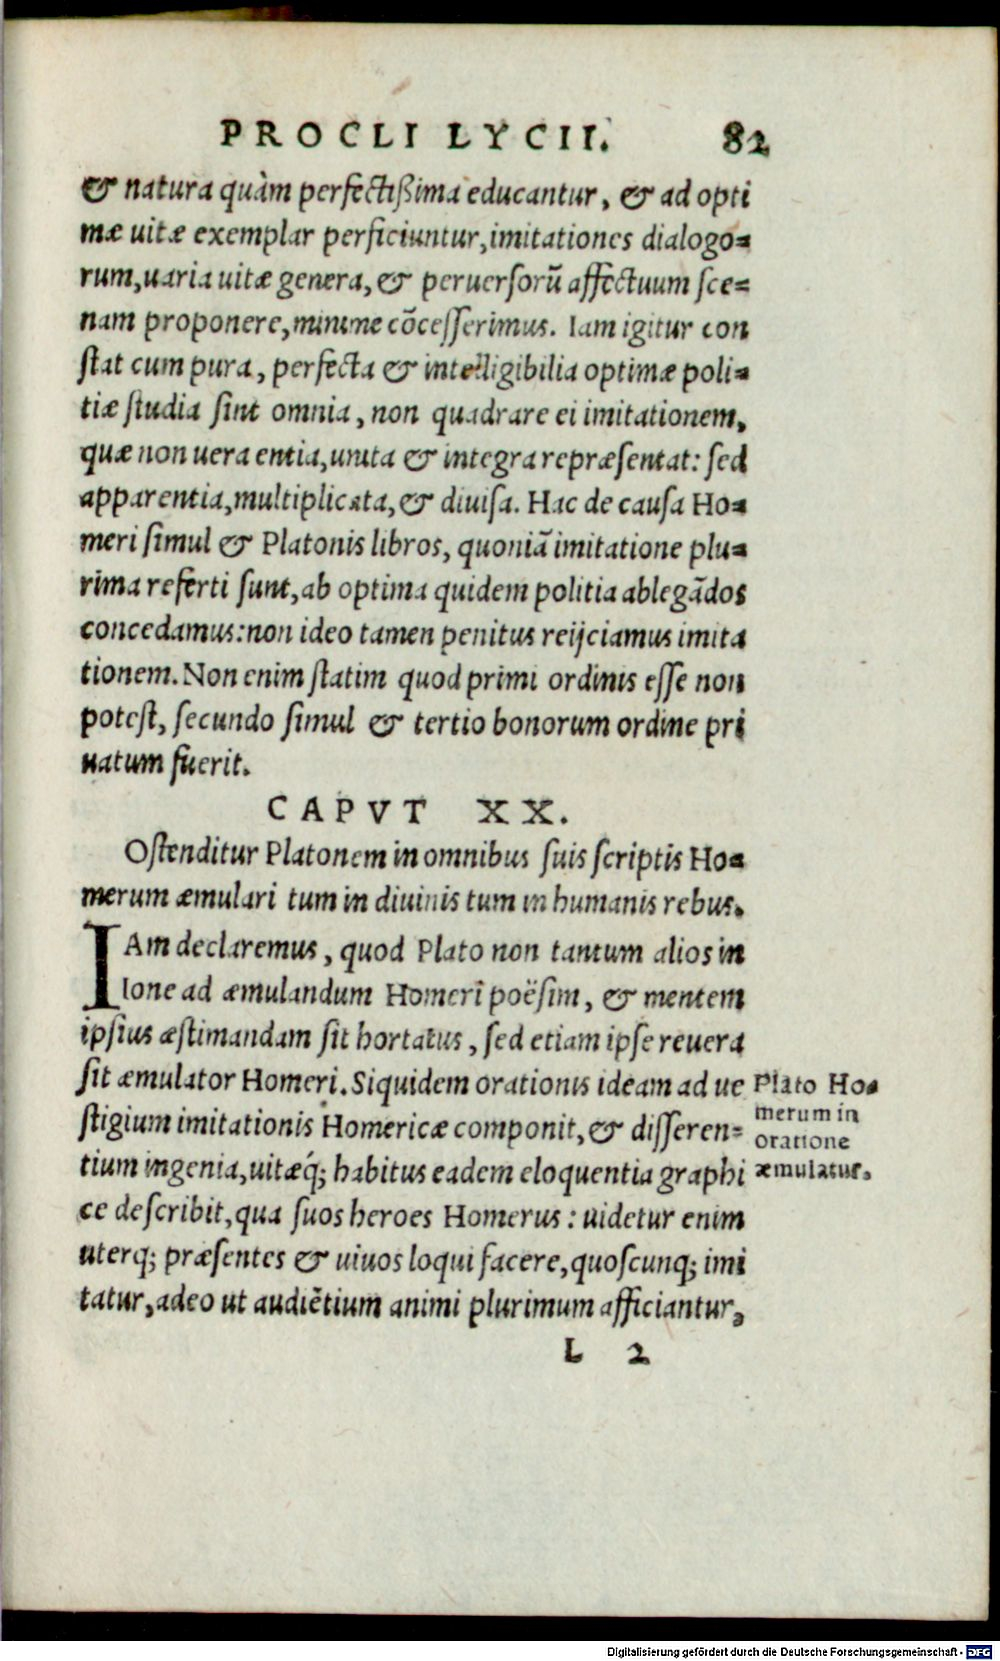 PROCLI LYCII. 82
& natura quàm perfectißima educantur, & ad opti
mæ uitæ exemplar perficiuntur, imitationes dialogo=
rum, uaria uitæ genera, & peruersorũ affectuum sce=
nam proponere, minime cõcesserimus. Iam igitur con
stat cum pura, perfecta & intelligibilia optimæ poli=
tiæ studia sint omnia, non quadrare ei imitationem,
quæ non uera entia, unita & integra repræsentat: sed
apparentia, multiplicata, & diuisa. Hac de causa Ho=
meri simul & Platonis libros, quoniã imitatione plu=
rima referti sunt, ab optima quidem politia ablegãdos
concedamus: non ideo tamen penitus reijciamus imita
tionem. Non enim statim quod primi ordinis esse non
potest, secundo simul & tertio bonorum ordine pri
uatum fuerit.
CAPVT XX.
Ostenditur Platonem in omnibus suis scriptis Ho=
merum æmulari tum in diuinis tum in humanis rebus.
IAm declaremus, quod Plato non tantum alios in
Ione ad æmulandum Homeri poësim, & mentem
ipsius æstimandam sit hortatus, sed etiam ipse reuera
sit æmulator Homeri. Siquidem orationis ideam ad ue
stigium imitationis Homericæ componit, & disseren=
tium ingenia, uitæq́; habitus eadem eloquentia graphi
ce describit, qua suos heroes Homerus: uidetur enim
uterq; præsentes & uiuos loqui facere, quoscunq; imi
tatur, adeo ut audiẽtium animi plurimum afficiantur,
Plato Ho=
merum in
oratione
æmulatur.
L 2
Digitalisierung gefördert durch die Deutsche Forschungsgemeinschaft - DFG